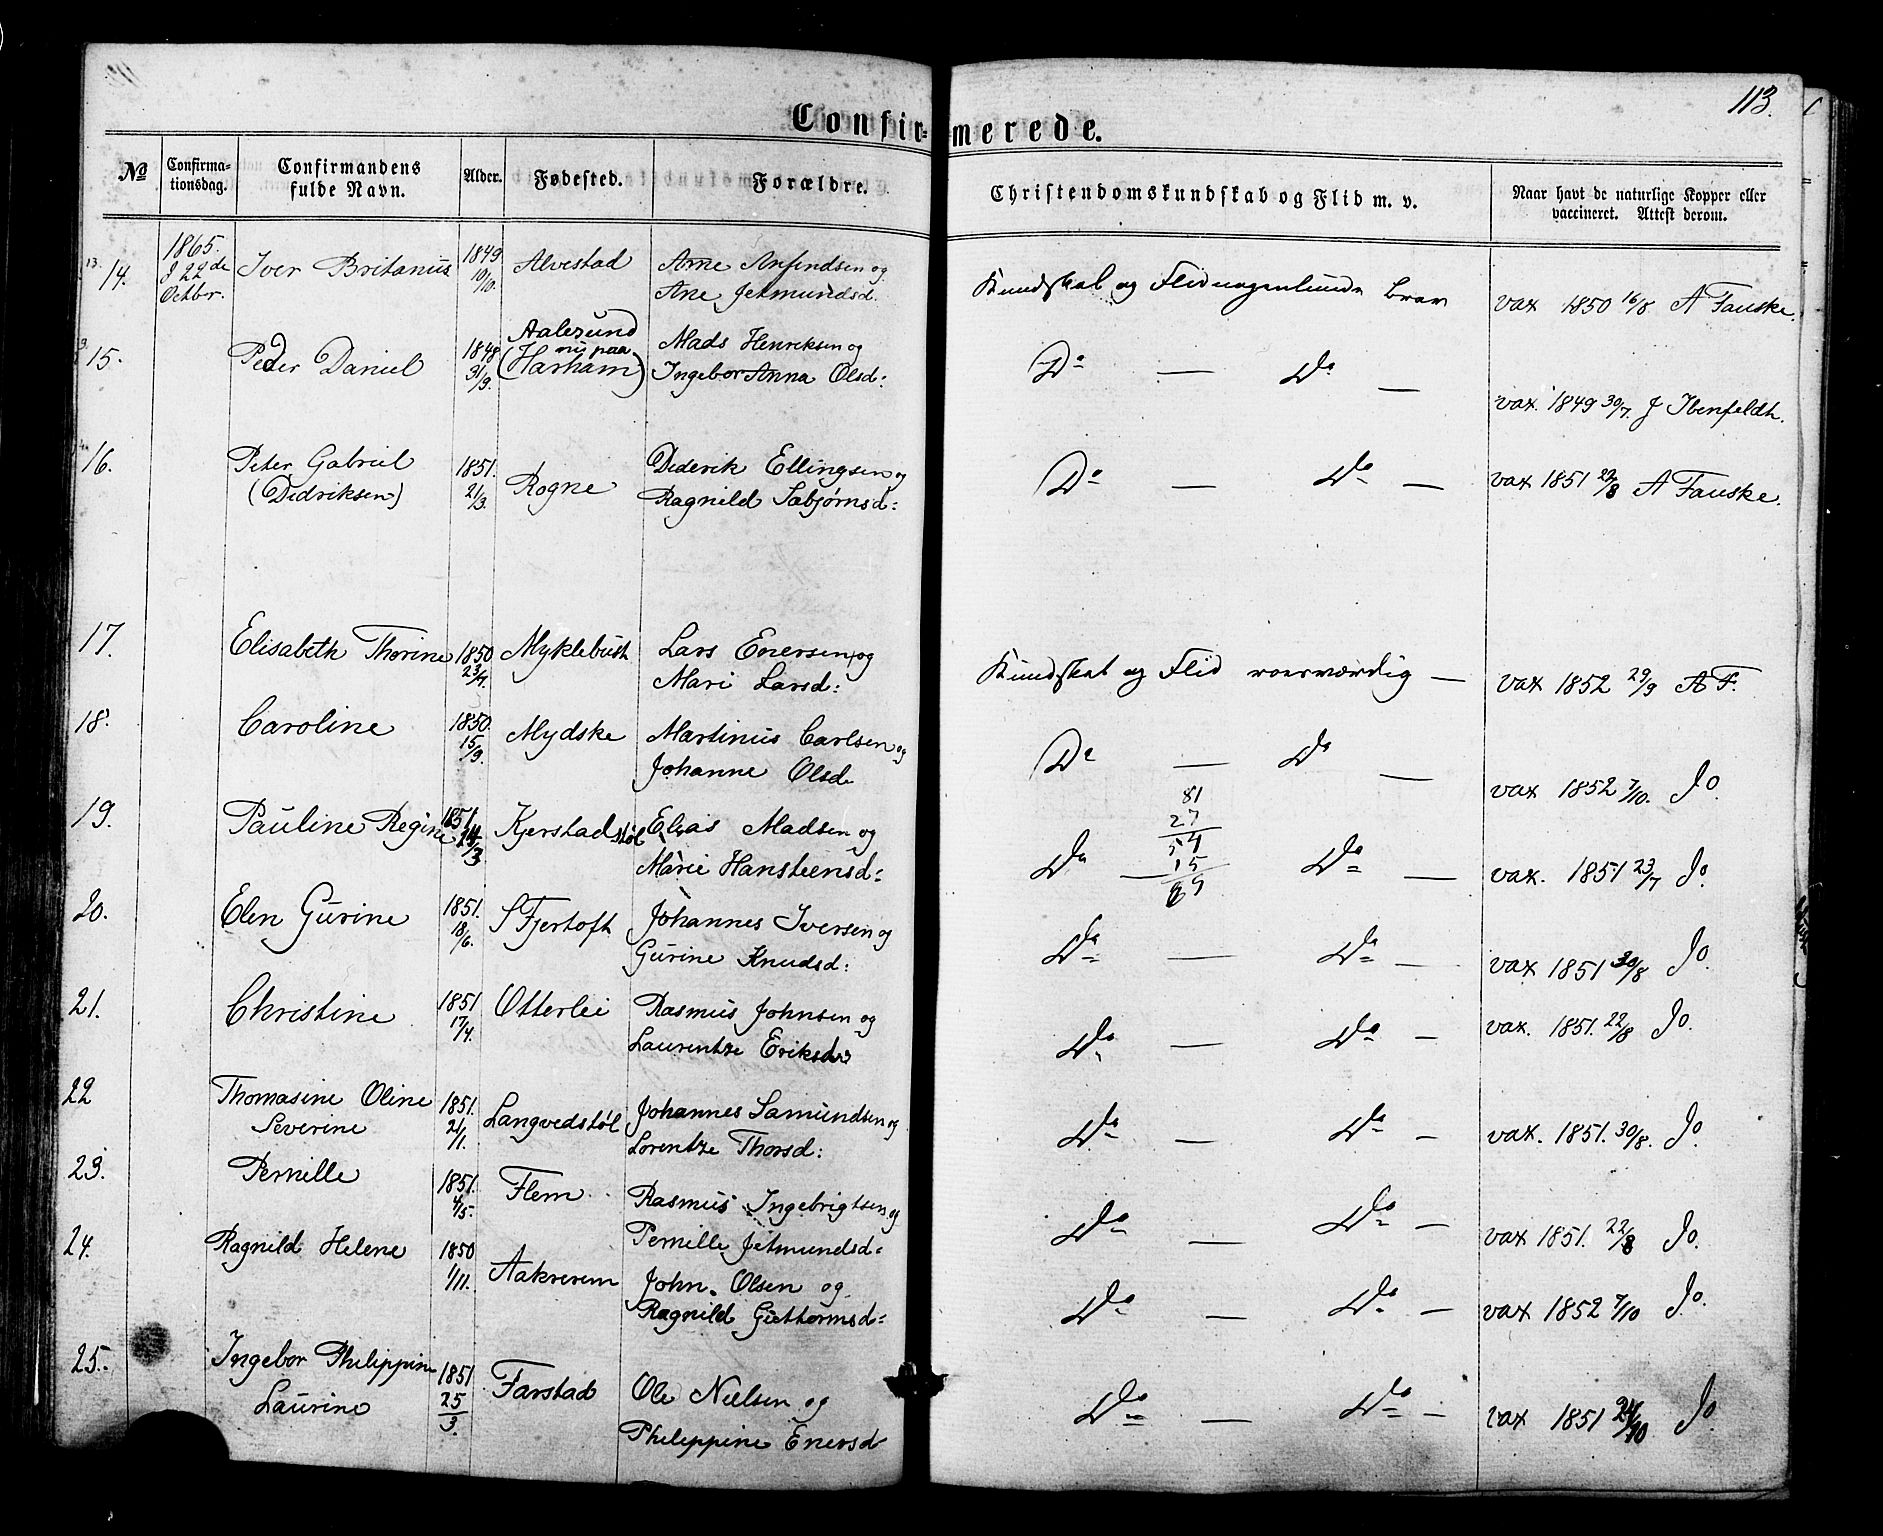 113.
Confirmerede.
No
Confirmationsdag.
Confirmandens fulde Navn.
Alder.
Fødested.
Forældre.
Christendomskundskab og Flid m. v.
Naar havt de naturlige Kopper eller vaccineret. Attest derom.
13. 14. 1865. J 22de Octbr. Iver Britanus 1849 10/10. Alvestad Arne Anfindsen og
Ane Jetmundsd.
Kundskab og Flid nogenlunde brav vax 1850 16/8 A Fauske.
15. Peder Daniel 1848 31/9. Aalesund (nu paa Harham) Mads Henriksen og
Ingebor Anna Olsd:
Do — Do — vax. 1849 30/7. J Ibenfeldh.
16. Peter Gabriel (Didriksen) 1851. 21/3. Rogne Diderik Ellingsen og
Ragnild Sæbjørnsd:
Do — Do — vax 1851 22/8 A Fauske.
17. Elisabeth Thorine 1850 23/4. Myklebust Lars Enersen og
Mari Larsd:
Kundskab og Flid roesværdig — vax 1852 29/9 A F.
18. Caroline 1850. 15/9. Mydske Martinus Carlsen og
Johanne Olsd
Do — Do — vax 1852 7/10. Jo.
81
27
54
15
69
19. Pauline Regine 1851. 24/3 Kjerstadstøl Elias Madsen og
Marie Hansteensd:
Do — Do — vax. 1851 23/7 Jo.
20. Elen Gurine 1851. 18/6. S Fjertoft Johannes Iversen og
Gurine Knudsd:
Do — Do — vax 1851 30/8 Jo.
21. Christine 1851 17/4. Otterlei Rasmus Johnsen og
Laurentze Eriksd:
Do — Do — vax. 1851. 22/8 Jo.
22 Thomasine Oline Severine 1851. 21/1. Langvedstøl Johannes Samundsen og
Lorentze Thorsd:
Do — Do — vax. 1851. 30/8. Jo.
23. Pernille 1851. 4/5. Flem Rasmus Ingebrigtsen og
Pernille Jetmundsd:
Do — Do — vax 1851. 22/8 Jo.
24. Ragnild Helene 1850 1/11. Aakrerem John Olsen og
Ragnild Guttormsd:
Do — Do — vax 1852 7/10 Jo.
25. Ingebor Philippine Laurine 1851 25/3. Farstad Ole Nielsen og
Philippine Enersd
Do — Do — vax 1851 24/10 Jo.